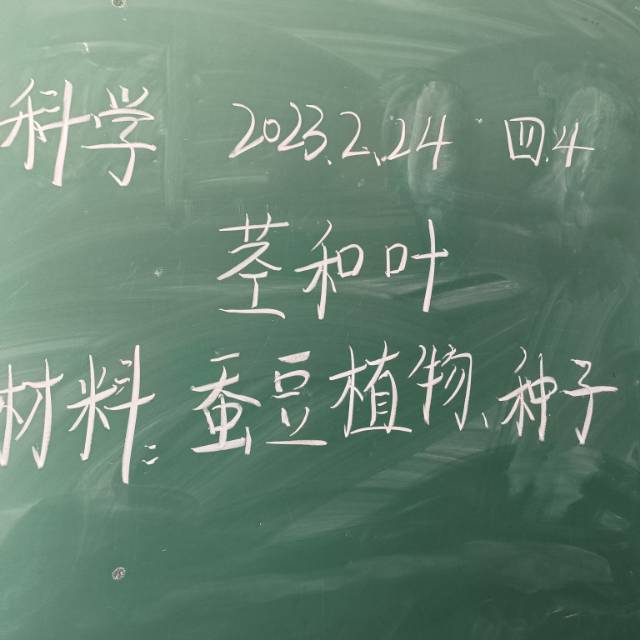 科学 2023.2.24 四.4
茎和叶
材料:蚕豆植物、种子